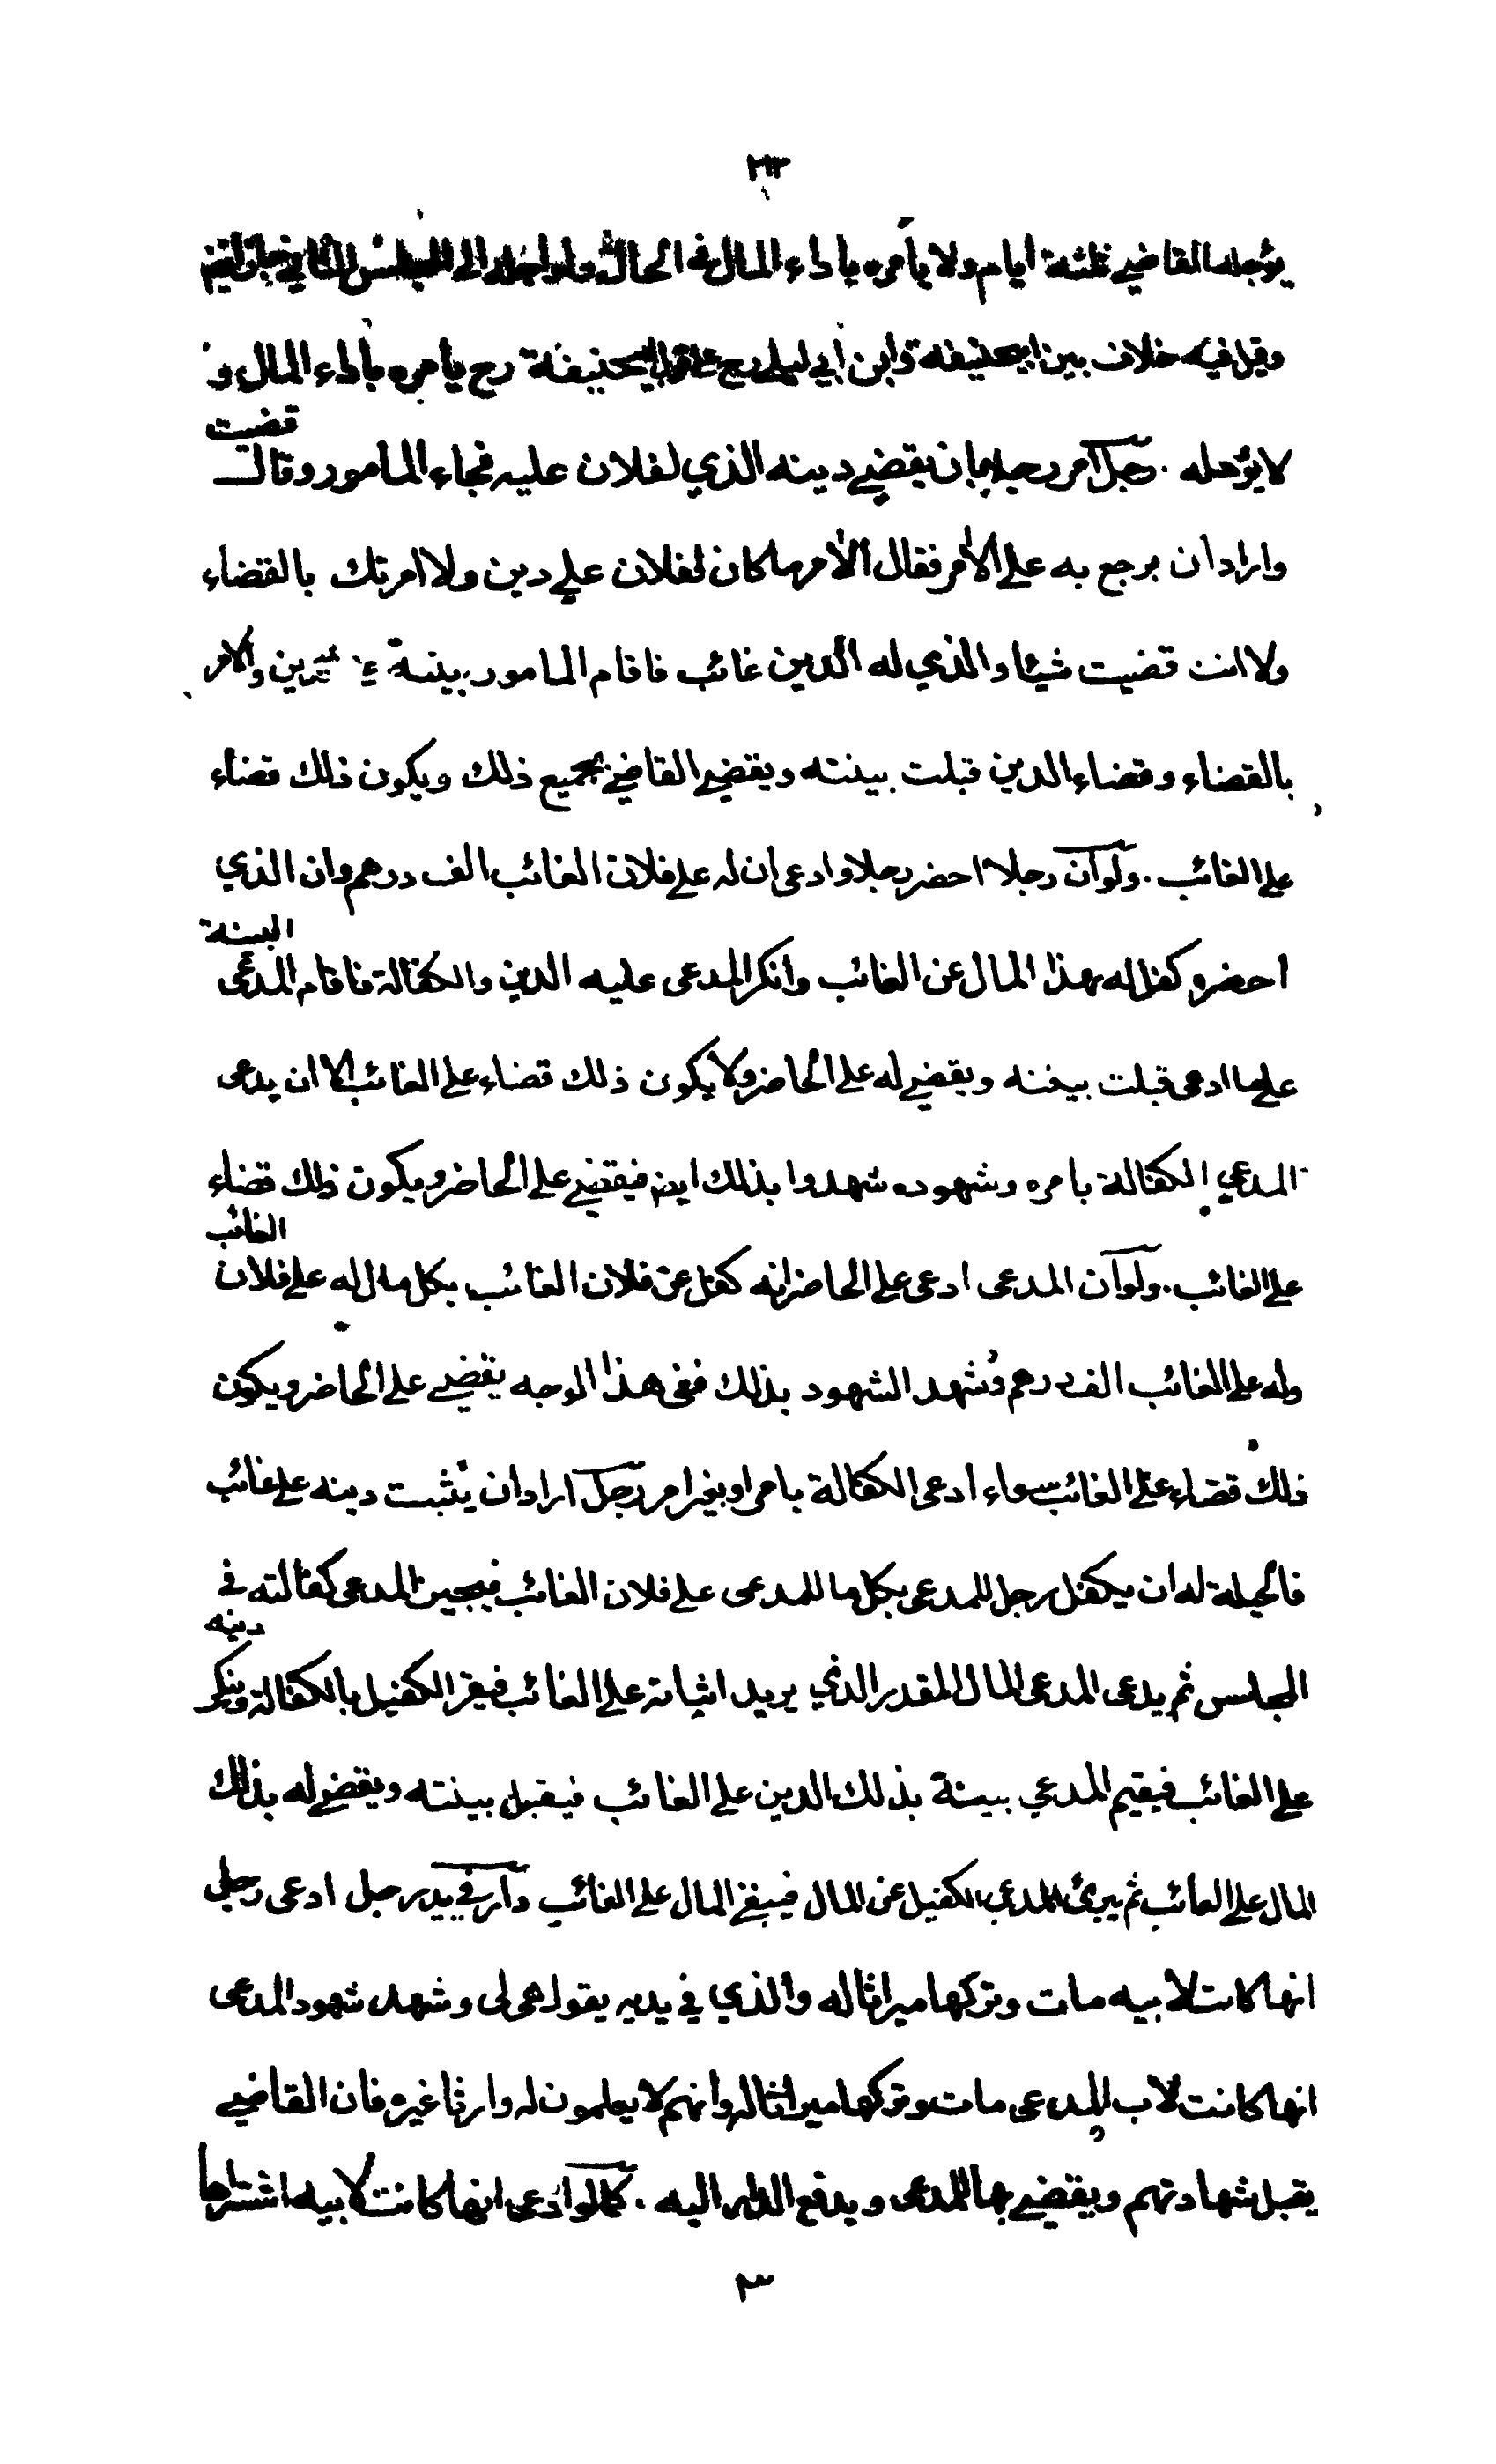 يؤجله القاضي ثلثة ايام ولا يأمره باداء المال في الحال ولو اجله الى المجلس الثاني
وقيل فيه خلاف بين ابيحنيفة وابن ابي ليلى رح ابيحنيفة رح يامره باداء المال و
لا يؤجله . رجل آمر رجلا بان يقضي دينه الذي لفلان عليه فجاء المامور وقال قضيت
واراد ان يرجع به على الآمر فقال الآمر ما كان لفلان علي دين ولا امرتك بالقضاء
ولا انت قضيت شيئا والذي له الدين غائب فاقام المامور بينة الدين والامر
بالقضاء وقضاء الدين قبلت بينته ويقضي القاضي بجميع ذلك ويكون ذلك قضاء
على الغائب . ولو ان رجلا احضر رجلا وادعى ان له على فلان الغائب الف درهم وان الذي
احضره كفل له بهذا المال عن الغائب وانكر المدعى عليه الدين والكفالة فاقام المدعى البينة
على ما ادعى قبلت بينته ويقضي له على الحاضر ولا يكون ذلك قضاء على الغائب الا ان يدعى
المدعي الكفالة بامره وشهوده شهدوا بذلك ايضا فيقضي على الحاضر ويكون ذلك قضاء
على الغائب . ولو ان المدعى ادعى على الحاضر انه كفل عن فلان الغائب بكل مال له على فلان الغائب
وله على الغائب الف درهم وشهد الشهود بذلك ففى هذا الوجه يقضي على الحاضر ويكون
ذلك قضاء على الغائب سواء ادعى الكفالة بامر او بغير امر رجل اراد ان يثبت دينه على غائب
فالحيلة له ان يكفل رجل للمدعى بكل ما للمدعى على فلان الغائب فيجيز المدعى كفالته في
المجلس ثم يدعى المدعى المال المقدر الذي يريد اثباته على الغائب فيقر الكفيل بالكفالة وينكر دينه
على الغائب فيقيم المدعي بينة بذلك الدين على الغائب فيقبل بينته ويقضي له بذلك
المال على الغائب ثم يبرئ المدعي الكفيل عن المال فيبقى المال على الغائب دار في يد رجل ادعى رجل
انها كانت لابيه مات وتركها ميراثا له والذي في يديه يقول هى لى وشهد شهود المدعى
انها كانت لاب المدعى مات وتركها ميراثا له وانهم لا يعلمون له وارثا غيره فان القاضي
يقبل شهادتهم ويقضي بها للمدعى ويدفع الدار اليه . كما لو ادعى انها كانت لابيه اشتراها
٣